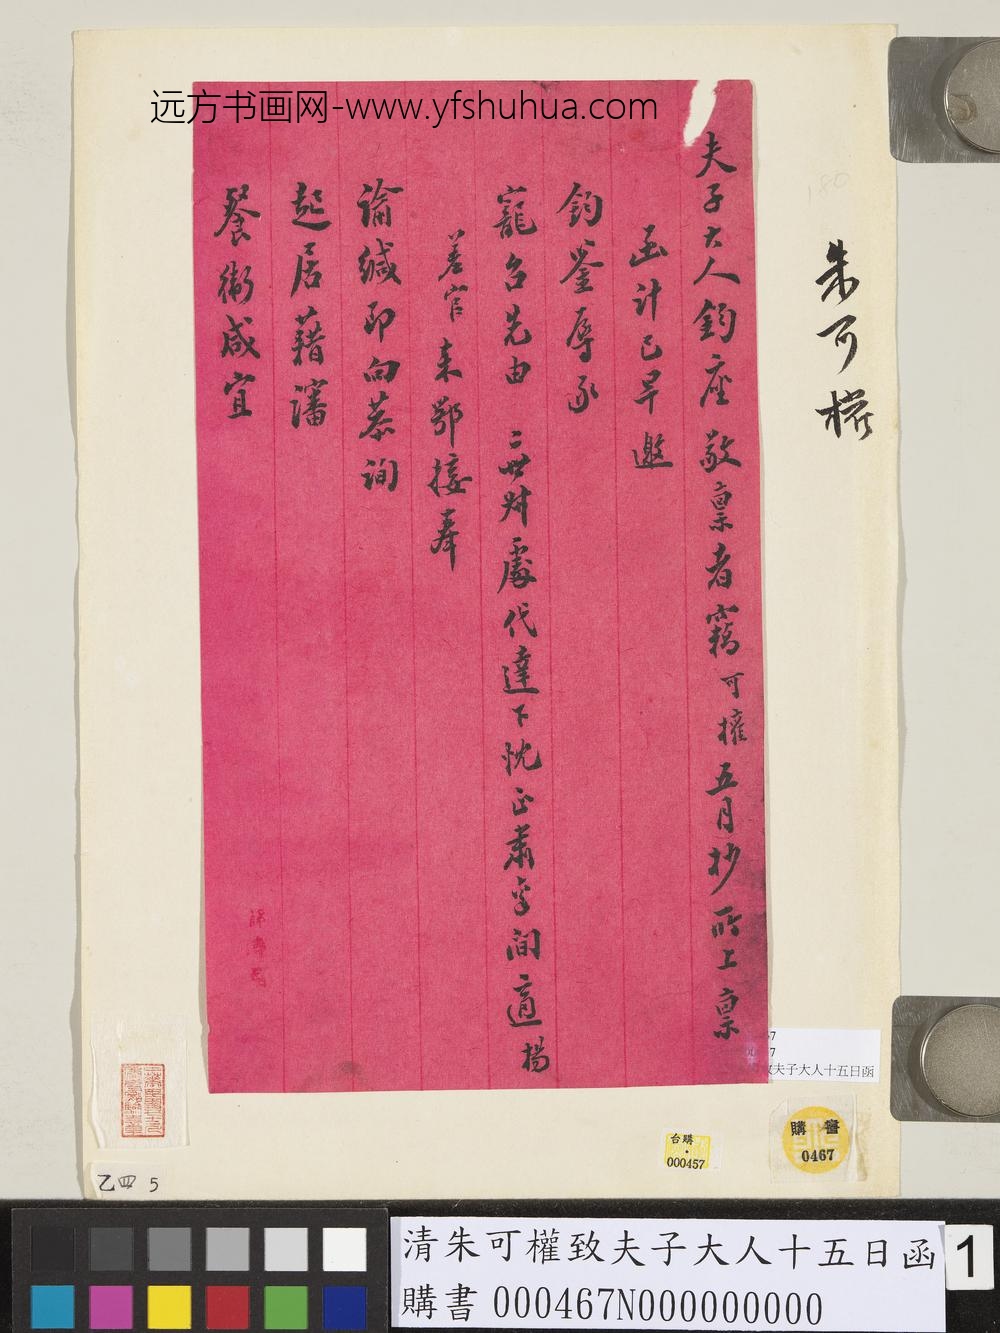 远方书画网-www.yfshuhua.com
夫子大人鈞座敬禀者竊可權五月抄所上禀
函計已早邀
鈞鑒辱承
寵召先由二世對處代達下忱正肅
間適楊
差官来鄂接奉
諭緘即向恭詢
起居藉瀋
餐衛咸宜
朱可權
致夫子大人十五日函
台購
000457
購書
0467
乙四 5
清朱可權致夫子大人十五日函
購書 000467N000000000
1